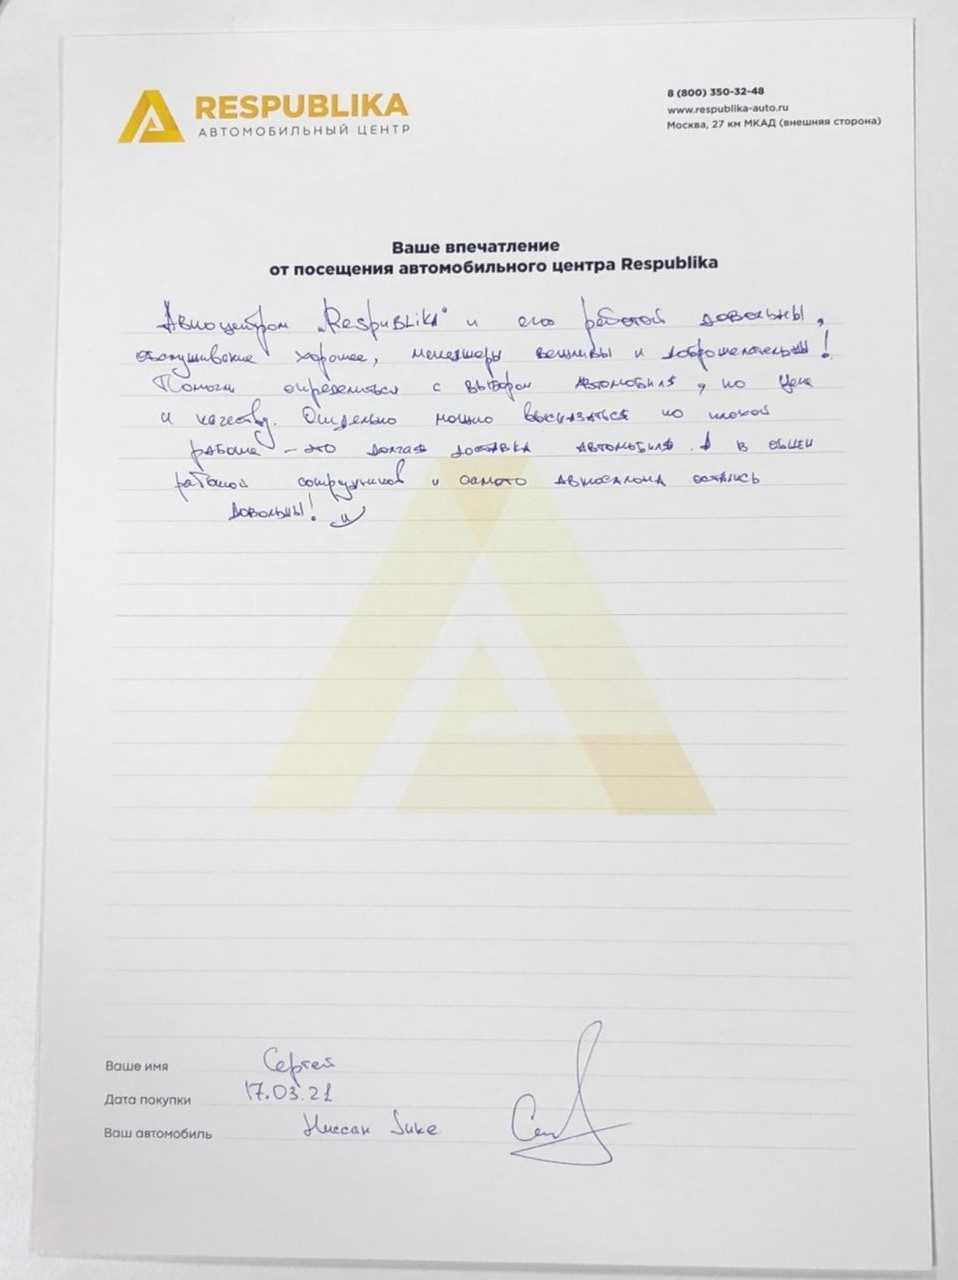 RESPUBLIKA
АВТОМОБИЛЬНЫЙ ЦЕНТР
8 (800) 350-32-48
www.respublika-auto.ru
Москва, 27 км МКАД (внешняя сторона)
Ваше впечатление
от посещения автомобильного центра Respublika
Автоцентром „Respublika" и его работой довольны,
обслуживание хорошее, менеджеры вежливы и доброжелательны!
Помогли определиться с выбором автомобиля, по цене
и качеству. Отдельно можно высказаться по плохой
работе - это долгая доставка автомобиля. А в общем
работой сотрудников и самого автосалона остались
довольны!
Ваше имя Сергей
Дата покупки 17.03.21
Ваш автомобиль Ниссан Juke